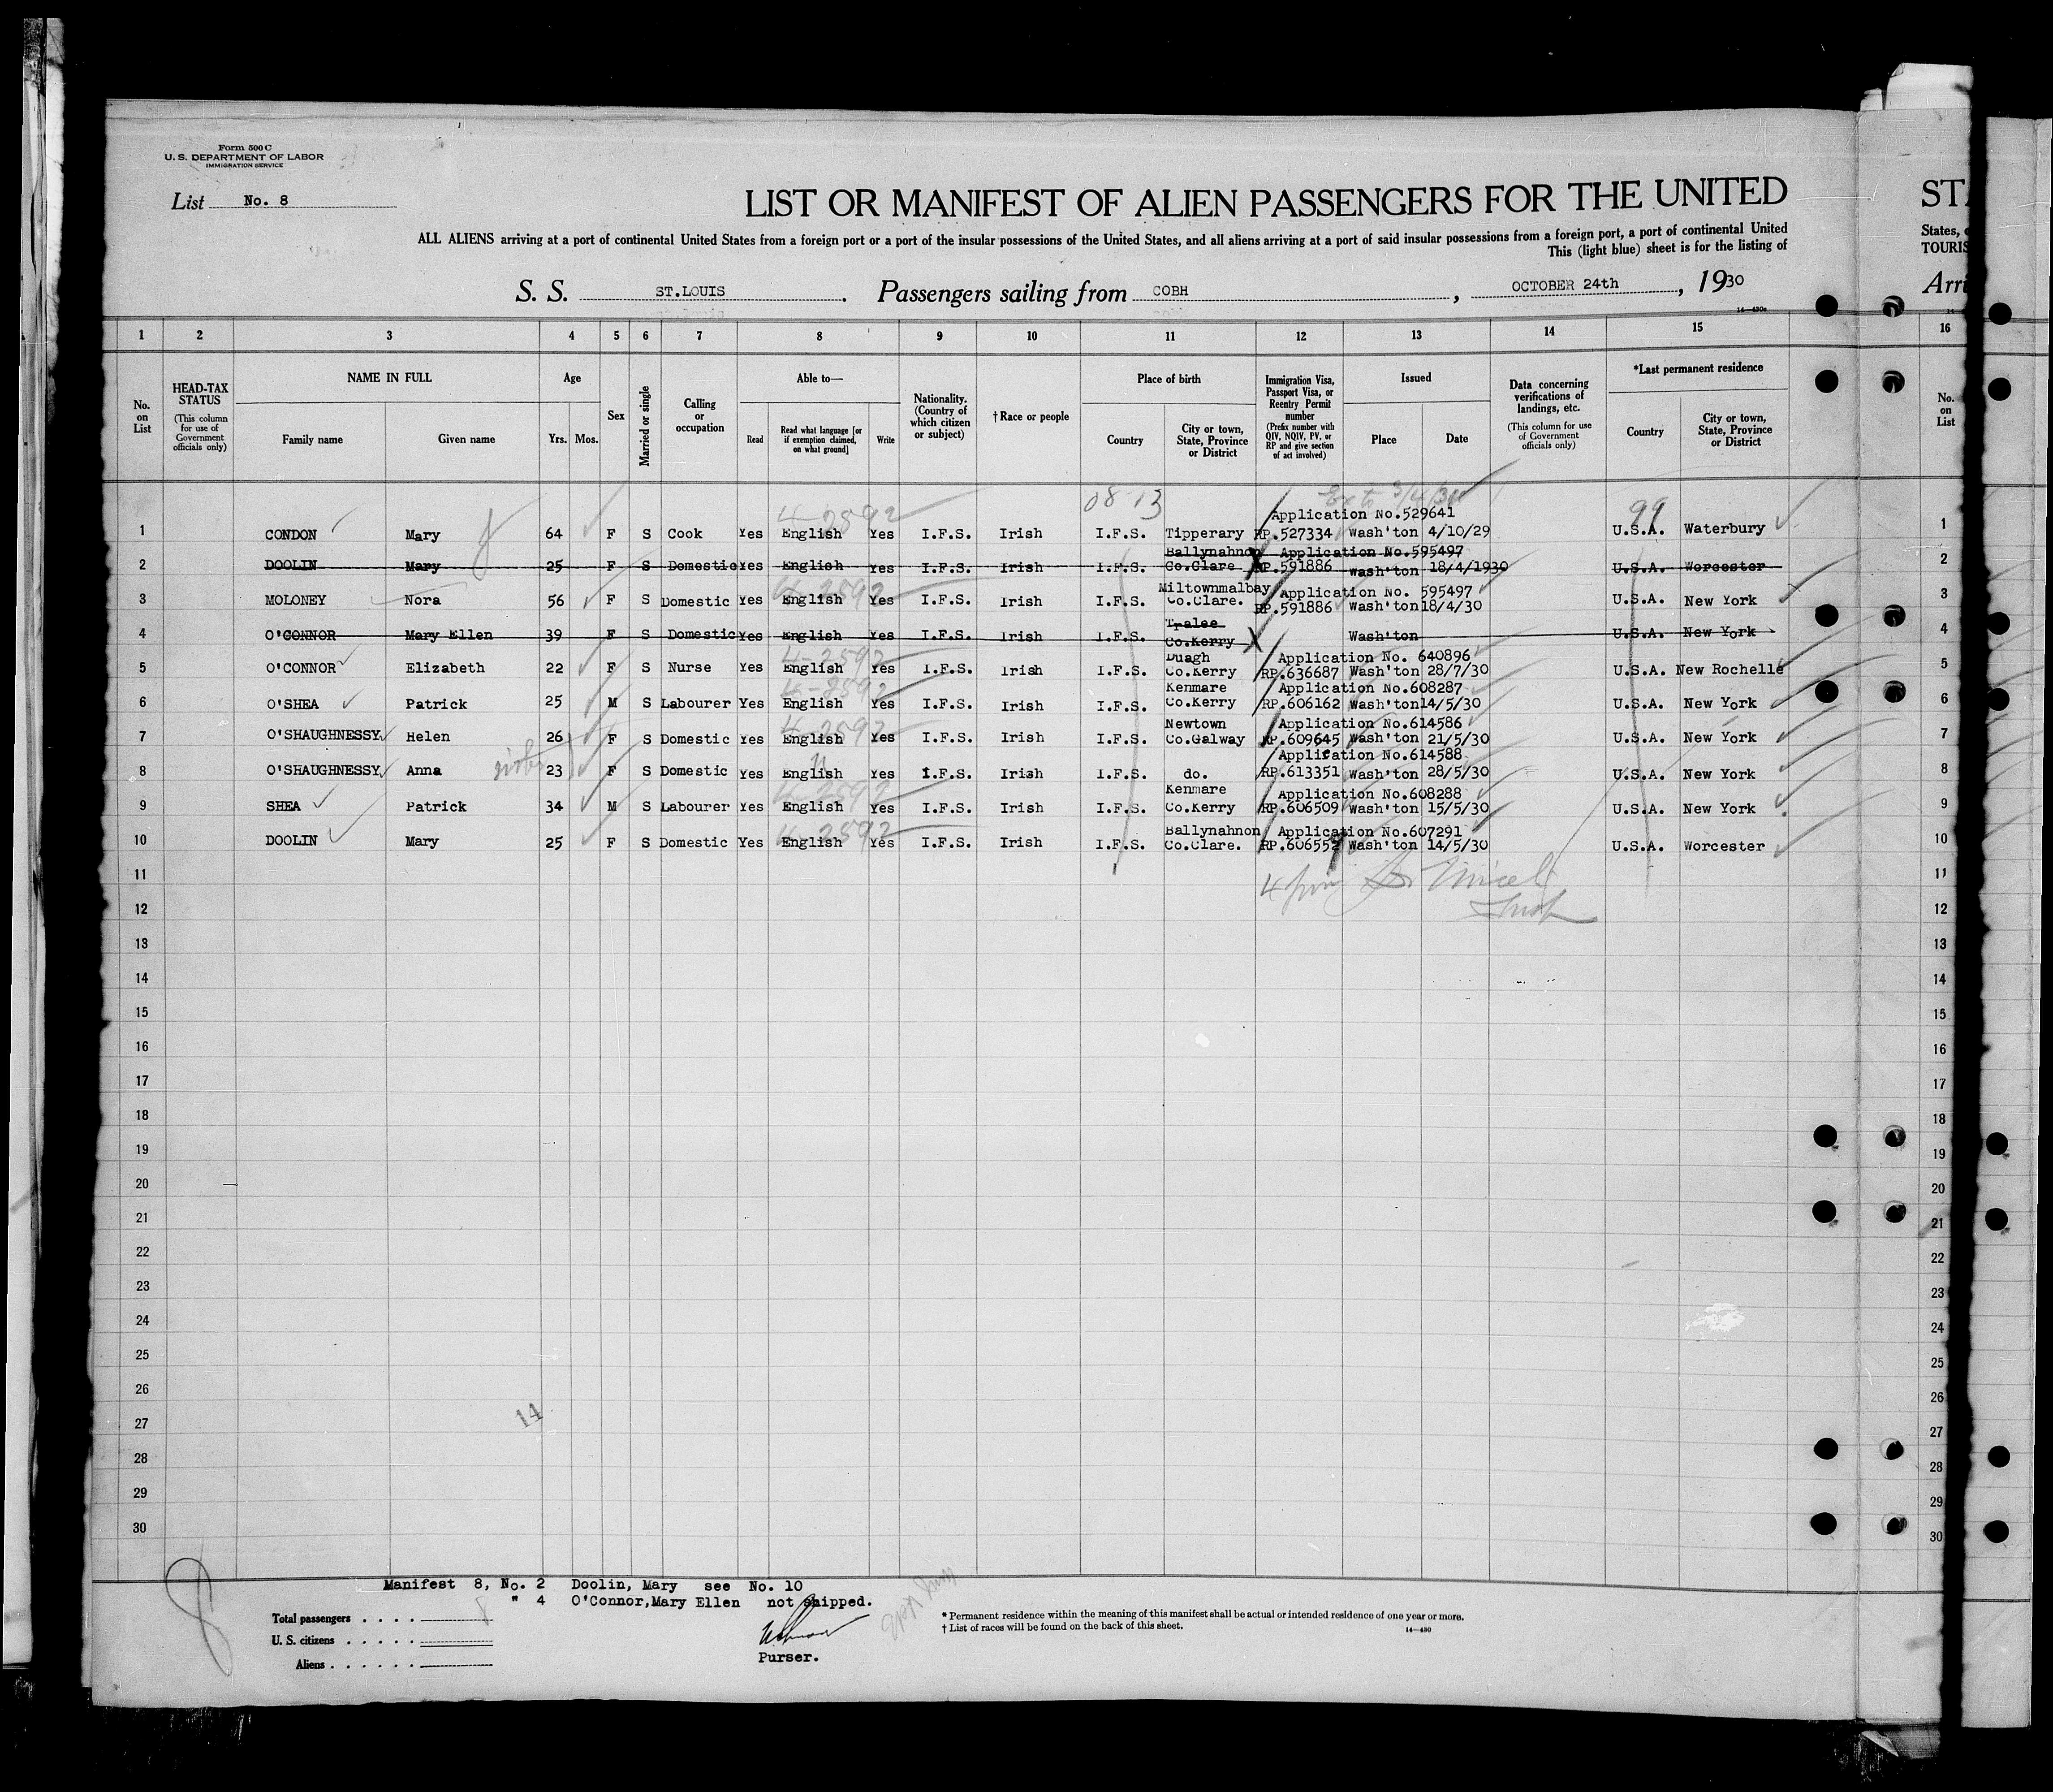 Form 500 C
U. S. DEPARTMENT OF LABOR
IMMIGRATION SERVICE
List No. 8
LIST OR MANIFEST OF ALIEN PASSENGERS FOR THE UNITED
ALL ALIENS arriving at a port of continental United States from a foreign port or a port of the insular possessions of the United States, and all aliens arriving at a port of said insular possessions from a foreign port, a port of continental United
This (light blue) sheet is for the listing of
S. S. ST.LOUIS. Passengers sailing from COBH, OCTOBER 24th, 1930
14—430c
1 2 3 4 5 6 7 8 9 10 11 12 13 14 15 16
No. on List
HEAD-TAX STATUS
(This column for use of Government officials only)
NAME IN FULL
Family name Given name
Age
Yrs. Mos.
Sex
Married or single
Calling or occupation
Able to—
Read
Read what language [or if exemption claimed, on what ground]
Write
Nationality. (Country of which citizen or subject)
† Race or people
Place of birth
Country
City or town, State, Province or District
Immigration Visa, Passport Visa, or Reentry Permit number
(Prefix number with QIV, NQIV, PV, or RP and give section of act involved)
Issued
Place Date
Data concerning verifications of landings, etc.
(This column for use of Government officials only)
*Last permanent residence
Country
City or town, State, Province or District
No. on List
08 13 99
4-2592
Application No.529641
1 CONDON Mary 64 F S Cook Yes English Yes I.F.S. Irish I.F.S. Tipperary RP.527334 Wash'ton 4/10/29 U.S.A. Waterbury 1
Ballynahnon Application No.595497
2 DOOLIN Mary 25 F S Domestic Yes English Yes I.F.S. Irish I.F.S. Co.Clare RP.591886 Wash'ton 18/4/1930 U.S.A. Worcester 2
4-2592
Miltownmalbay Application No. 595497
3 MOLONEY Nora 56 F S Domestic Yes English Yes I.F.S. Irish I.F.S. Co.Clare. RP.591886 Wash'ton 18/4/30 U.S.A. New York 3
Tralee
4 O'CONNOR Mary Ellen 39 F S Domestic Yes English Yes I.F.S. Irish I.F.S. Co.Kerry X Wash'ton U.S.A. New York 4
4-2592
Duagh Application No. 640896
5 O'CONNOR Elizabeth 22 F S Nurse Yes English Yes I.F.S. Irish I.F.S. Co.Kerry RP.636687 Wash'ton 28/7/30 U.S.A. New Rochelle 5
4-2592
Kenmare Application No.608287
6 O'SHEA Patrick 25 M S Labourer Yes English Yes I.F.S. Irish I.F.S. Co.Kerry RP.606162 Wash'ton 14/5/30 U.S.A. New York 6
4-2592
Newtown Application No.614586
7 O'SHAUGHNESSY Helen 26 F S Domestic Yes English Yes I.F.S. Irish I.F.S. Co.Galway RP.609645 Wash'ton 21/5/30 U.S.A. New York 7
Application No.614588
8 O'SHAUGHNESSY Anna 23 F S Domestic Yes English Yes I.F.S. Irish I.F.S. do. RP.613351 Wash'ton 28/5/30 U.S.A. New York 8
4-2592
Kenmare Application No.608288
9 SHEA Patrick 34 M S Labourer Yes English Yes I.F.S. Irish I.F.S. Co.Kerry RP.606509 Wash'ton 15/5/30 U.S.A. New York 9
4-2592
Ballynahnon Application No.607291
10 DOOLIN Mary 25 F S Domestic Yes English Yes I.F.S. Irish I.F.S. Co.Clare. RP.606552 Wash'ton 14/5/30 U.S.A. Worcester 10
11 11
12 12
13 13
14 14
15 15
16 16
17 17
18 18
19 19
20 20
21 21
22 22
23 23
24 24
25 25
26 26
14
27 27
28 28
29 29
30 30
Manifest 8, No. 2 Doolin, Mary see No. 10
" 4 O'Connor,Mary Ellen not shipped.
Total passengers 8
U. S. citizens
Aliens
Purser.
* Permanent residence within the meaning of this manifest shall be actual or intended residence of one year or more.
† List of races will be found on the back of this sheet.
14—430
8
STA
States, o
TOURIS
Arri